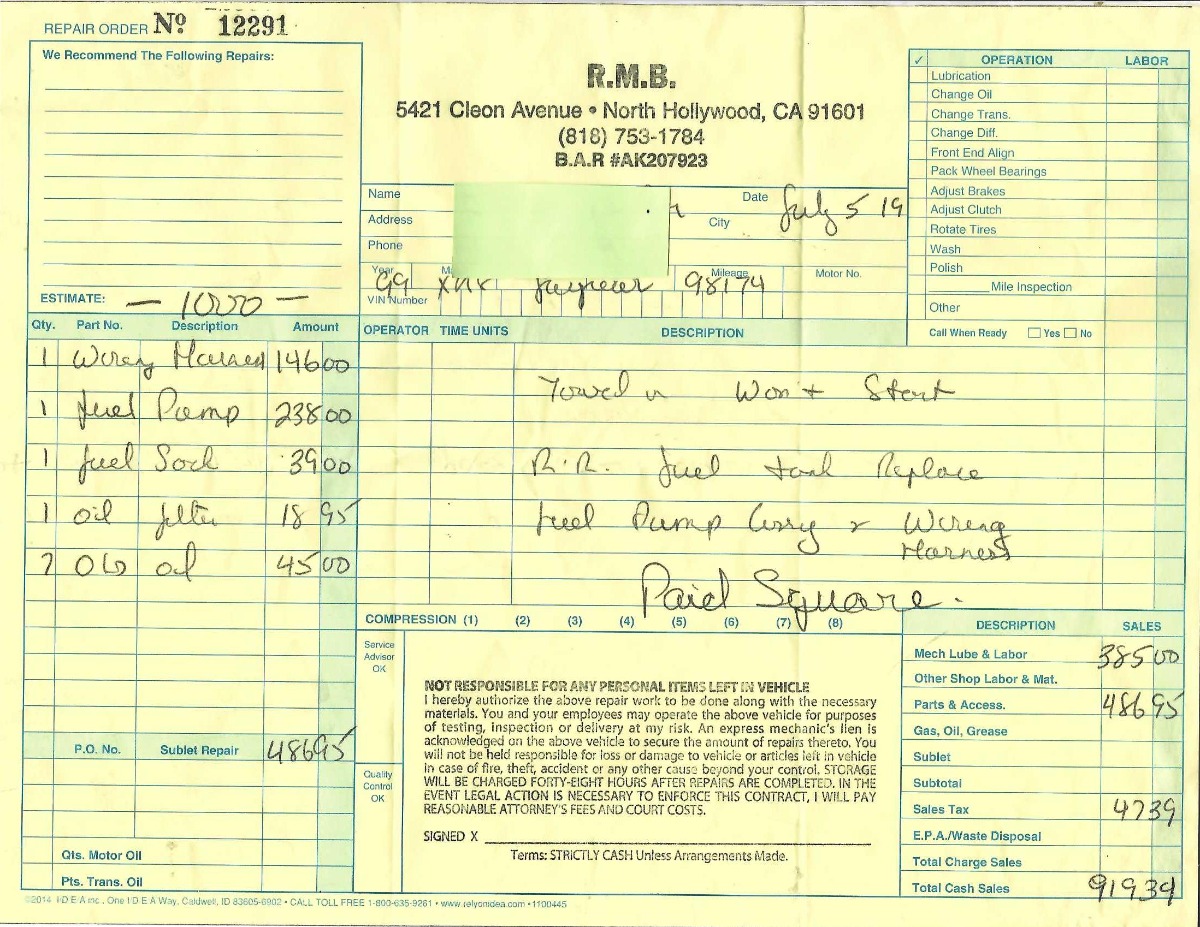 REPAIR ORDER Nº 12291
We Recommend The Following Repairs:
ESTIMATE: — 1000 —
R.M.B.
5421 Cleon Avenue • North Hollywood, CA 91601
(818) 753-1784
B.A.R #AK207923
Name
Date July 5 19
Address
City
Phone
Year 99
Mileage 98174
Motor No.
VIN Number
✓ OPERATION LABOR
Lubrication
Change Oil
Change Trans.
Change Diff.
Front End Align
Pack Wheel Bearings
Adjust Brakes
Adjust Clutch
Rotate Tires
Wash
Polish
Mile Inspection
Other
Call When Ready Yes No
Qty. Part No. Description Amount
1 Wireng Harness 146 00
1 fuel Pump 238 00
1 fuel Sock 39 00
1 oil filter 18 95
7 oil 45 00
P.O. No. Sublet Repair 486 95
Qts. Motor Oil
Pts. Trans. Oil
OPERATOR TIME UNITS DESCRIPTION
Towed in Won't Start
R.R. fuel tank Replace
fuel Pump Assy & Wireng
Harness
Paid Square.
COMPRESSION (1) (2) (3) (4) (5) (6) (7) (8)
Service
Advisor
OK
Quality
Control
OK
NOT RESPONSIBLE FOR ANY PERSONAL ITEMS LEFT IN VEHICLE
I hereby authorize the above repair work to be done along with the necessary
materials. You and your employees may operate the above vehicle for purposes
of testing, inspection or delivery at my risk. An express mechanic's lien is
acknowledged on the above vehicle to secure the amount of repairs thereto. You
will not be held responsible for loss or damage to vehicle or articles left in vehicle
in case of fire, theft, accident or any other cause beyond your control. STORAGE
WILL BE CHARGED FORTY-EIGHT HOURS AFTER REPAIRS ARE COMPLETED. IN THE
EVENT LEGAL ACTION IS NECESSARY TO ENFORCE THIS CONTRACT, I WILL PAY
REASONABLE ATTORNEY'S FEES AND COURT COSTS.
SIGNED X
Terms: STRICTLY CASH Unless Arrangements Made.
DESCRIPTION SALES
Mech Lube & Labor 385 00
Other Shop Labor & Mat.
Parts & Access. 486 95
Gas, Oil, Grease
Sublet
Subtotal
Sales Tax 47 39
E.P.A./Waste Disposal
Total Charge Sales
Total Cash Sales 919 34
©2014 I D E A inc., One I D E A Way, Caldwell, ID 83605-6902 • CALL TOLL FREE 1-800-635-9261 • www.relyonidea.com • 1100445